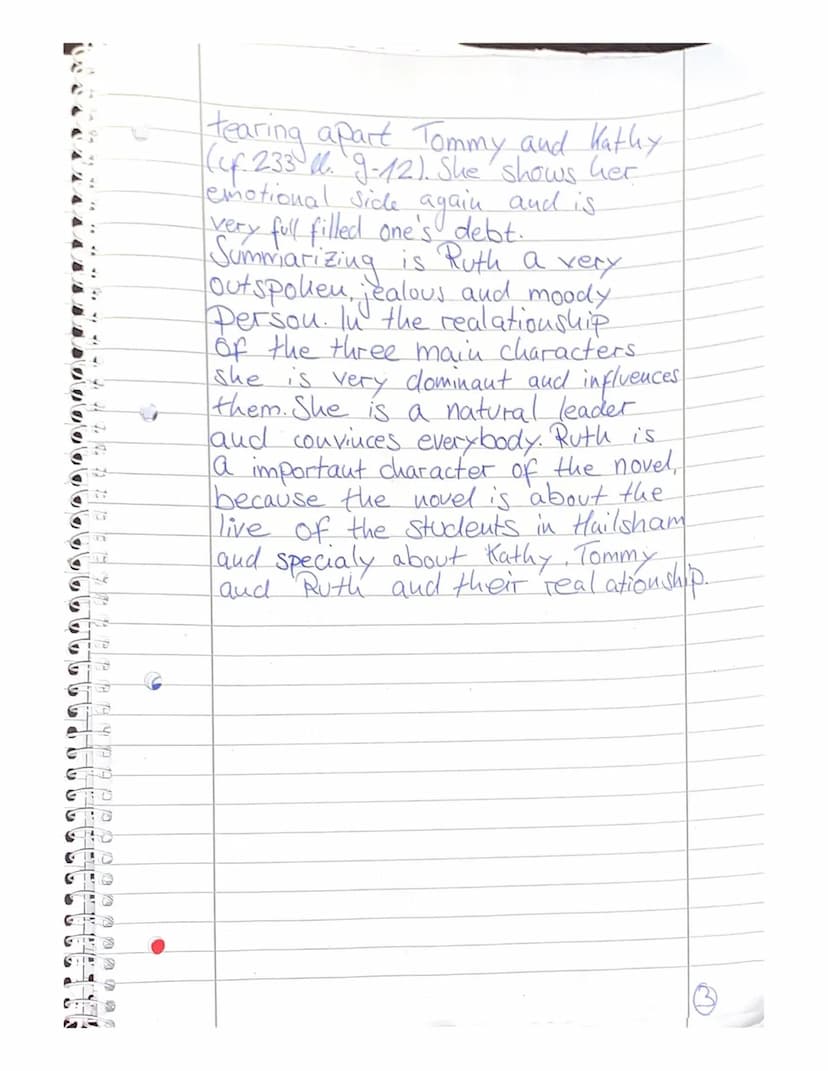 tearing apart Tommy and Kathy
(cf. 233 ll. 9-12). She shows her
emotional side again and is
very full filled one's debt.
Summarizing is Ruth a very
outspoken, jealous and moody
person. In the realationship
of the three main characters
she is very dominant and influences
them. She is a natural leader
and convinces everybody. Ruth is
a important character of the novel,
because the novel is about the
live of the students in Hailsham
and specialy about Kathy, Tommy
and Ruth and their realationship.
3